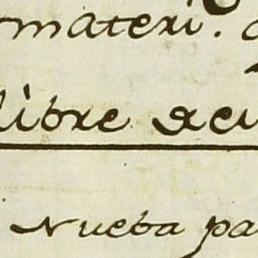 materi.
libre
Nueba pa